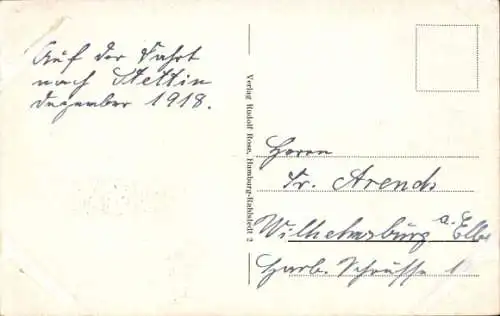 Auf der Fahrt
nach Stettin
Dezember 1918.
Verlag Rudolf Rose, Hamburg-Rahlstedt 2
Herrn
Fr. Arends
Wilhelmsburg a. Elbe
Harb.